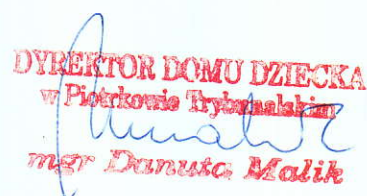 DYREKTOR DOMU DZIECKA
w Piotrkowie Trybunalskim
mgr Danuta Malik